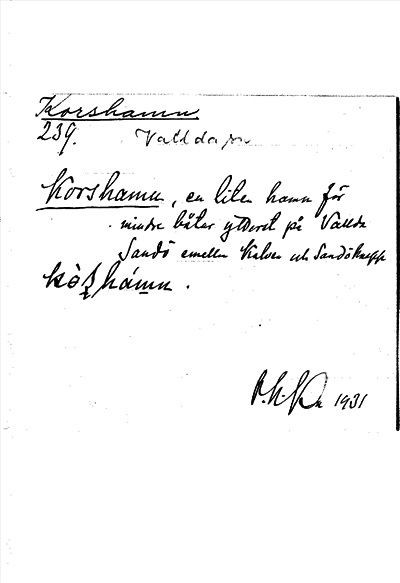 Korshamn
239.
Vallda sn
Korshamn, en liten hamn för
mindre båter ytterst på Vallda
Sandö emellan Kalven och Sandöknapp
1931